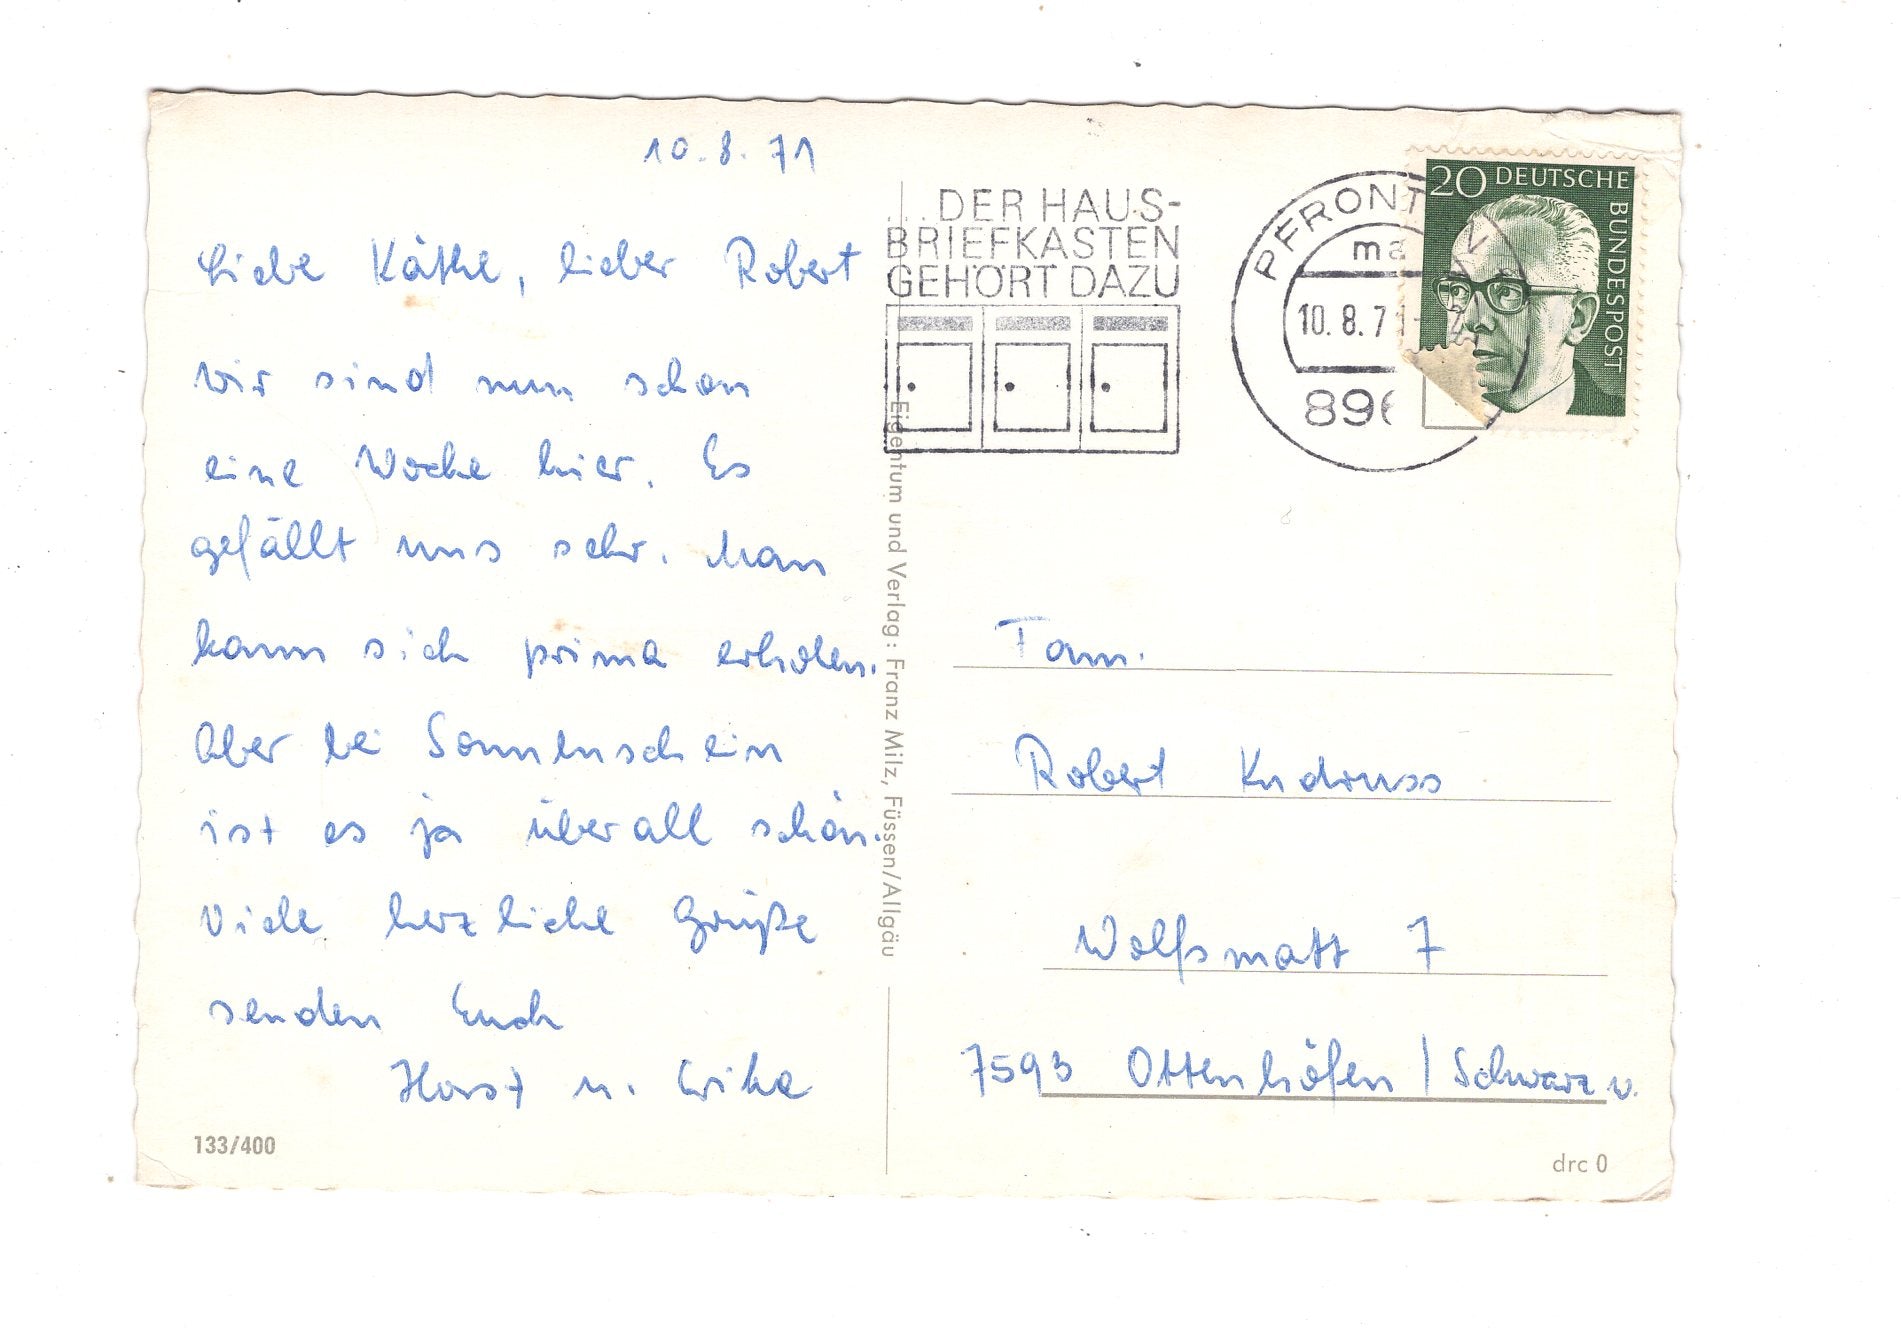 10.8.71
Liebe Käthe, lieber Robert
wir sind nun schon
eine Woche hier. Es
gefällt uns sehr. Man
kann sich prima erholen.
Aber bei Sonnenschein
ist es ja überall schön.
Viele herzliche Grüße
senden Euch
Horst u. Erika
133/400
Eigentum und Verlag: Franz Milz, Füssen/Allgäu
...DER HAUS-
BRIEFKASTEN
GEHÖRT DAZU
PFRONT
ma
10.8.71-
896
20 DEUTSCHE
BUNDESPOST
Fam.
Robert
Wolfsmatt 7
7593 Ottenhöfen / Schwarzw.
drc 0